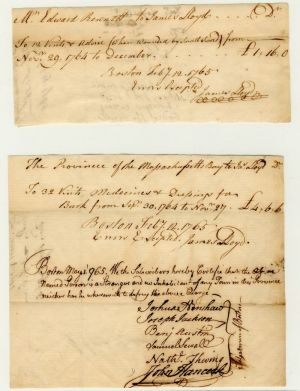 Mr. Edward Bennett To James Lloyd Dr
To 12 Visits & Advice from
Novr. 20. 1764 to December £1.16.0
Boston Feby 12. 1765
Errors Excepted
James Lloyd
The Province of the Massachusetts Bay to Js. Lloyd Dr
To 32 Visits Medicines & Dressings for
Back from Sep. 30. 1764 to Novr 27. £4.6.6
Boston Feby. 12. 1765
Errors Excepted. James Lloyd.
Boston May 1 1765. We the Subscribers hereby Certifie that the
Named Person is a Stranger and no Inhabitant of any Town in this Province
neither has he wherewith to defray the above Charge
Joshua Henshaw
Joseph Jackson
Benj Austin
Samuel Sewall
Nathl. Thwing
John Hancock
Selectmen of Boston